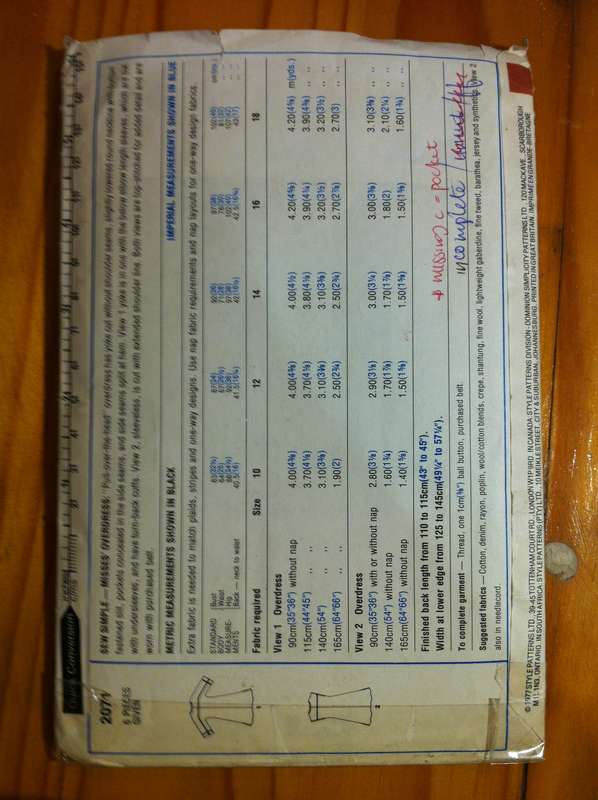 Quick Conversion
2071
6 PIECES
GIVEN
SEW SIMPLE — MISSES' OVERDRESS: "Pull-over-the-head" overdress has yoke cut without shoulder seams, slightly lowered round neckline with button
fastened slit, pockets concealed in the side seams, and side seams split at hem. View 1 yoke is in one with the below elbow length sleeves, which are cut
with undersleeves, and have turn-back cuffs. View 2, sleeveless, is cut with extended shoulder line. Both views are top-stitched for added detail and are
worn with purchased belt.
METRIC MEASUREMENTS SHOWN IN BLACK IMPERIAL MEASUREMENTS SHOWN IN BLUE
Extra fabric is needed to match plaids, stripes and one-way designs. Use nap fabric requirements and nap layouts for one-way design fabrics.
STANDARD Bust
BODY Waist
MEASURE- Hip
MENTS Back — neck to waist
Fabric required Size 10 12 14 16 18
View 1 Overdress
90cm(35"36") without nap 4.00(4⅜) 4.00(4⅜) 4.00(4½) 4.20(4⅝) 4.20(4⅝) m(yds.)
115cm(44"45") ,, ,, 3.70(4⅛) 3.70(4⅛) 3.80(4⅛) 3.90(4¼) 3.90(4⅜) ,, ,,
140cm(54") ,, ,, 3.10(3⅜) 3.10(3⅜) 3.10(3⅜) 3.20(3½) 3.20(3½) ,, ,,
165cm(64"66") ,, ,, 1.90(2) 2.50(2¾) 2.50(2¾) 2.70(2⅞) 2.70(3) ,, ,,
View 2 Overdress
90cm(35"36") with or without nap 2.80(3⅛) 2.90(3⅛) 3.00(3¼) 3.00(3⅜) 3.10(3⅜) ,, ,,
140cm(54") without nap 1.60(1¾) 1.70(1⅞) 1.70(1⅞) 1.80(2) 2.10(2¼) ,, ,,
165cm(64"66") without nap 1.40(1⅝) 1.50(1⅝) 1.50(1⅝) 1.50(1⅝) 1.60(1¾) ,, ,,
Finished back length from 110 to 115cm(43" to 45").
Width at lower edge from 125 to 145cm(49¼" to 57¼").
missing c = pocket
incomplete
To complete garment — Thread, one 1cm(⅜") ball button, purchased belt.
Suggested fabrics — Cotton, denim, rayon, poplin, wool/cotton blends, crepe, shantung, fine wool, lightweight gaberdine, fine tweed, barathea, jersey and synthetics. View 2
also in needlecord.
© 1977 STYLE PATTERNS LTD., 39-45 TOTTENHAM COURT RD., LONDON W1P 9RD. IN CANADA: STYLE PATTERNS DIVISION - DOMINION SIMPLICITY PATTERNS LTD., 120 MACKAVE., SCARBOROUGH
M1L 1N3, ONTARIO. IN SOUTH AFRICA: STYLE PATTERNS (PTY) LTD., 10 MEIKLE STREET, CITY & SUBURBAN, JOHANNESBURG. PRINTED IN GREAT BRITAIN. IMPRIMÉ EN GRANDE-BRETAGNE
1
2